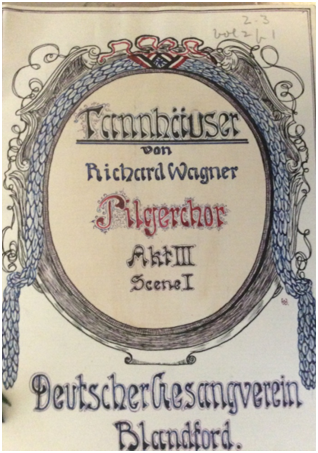 2.3
Tannhäuser
von
Richard Wagner
Pilgerchor
Akt III
Scene I
Deutscher Gesangverein
Blandford.